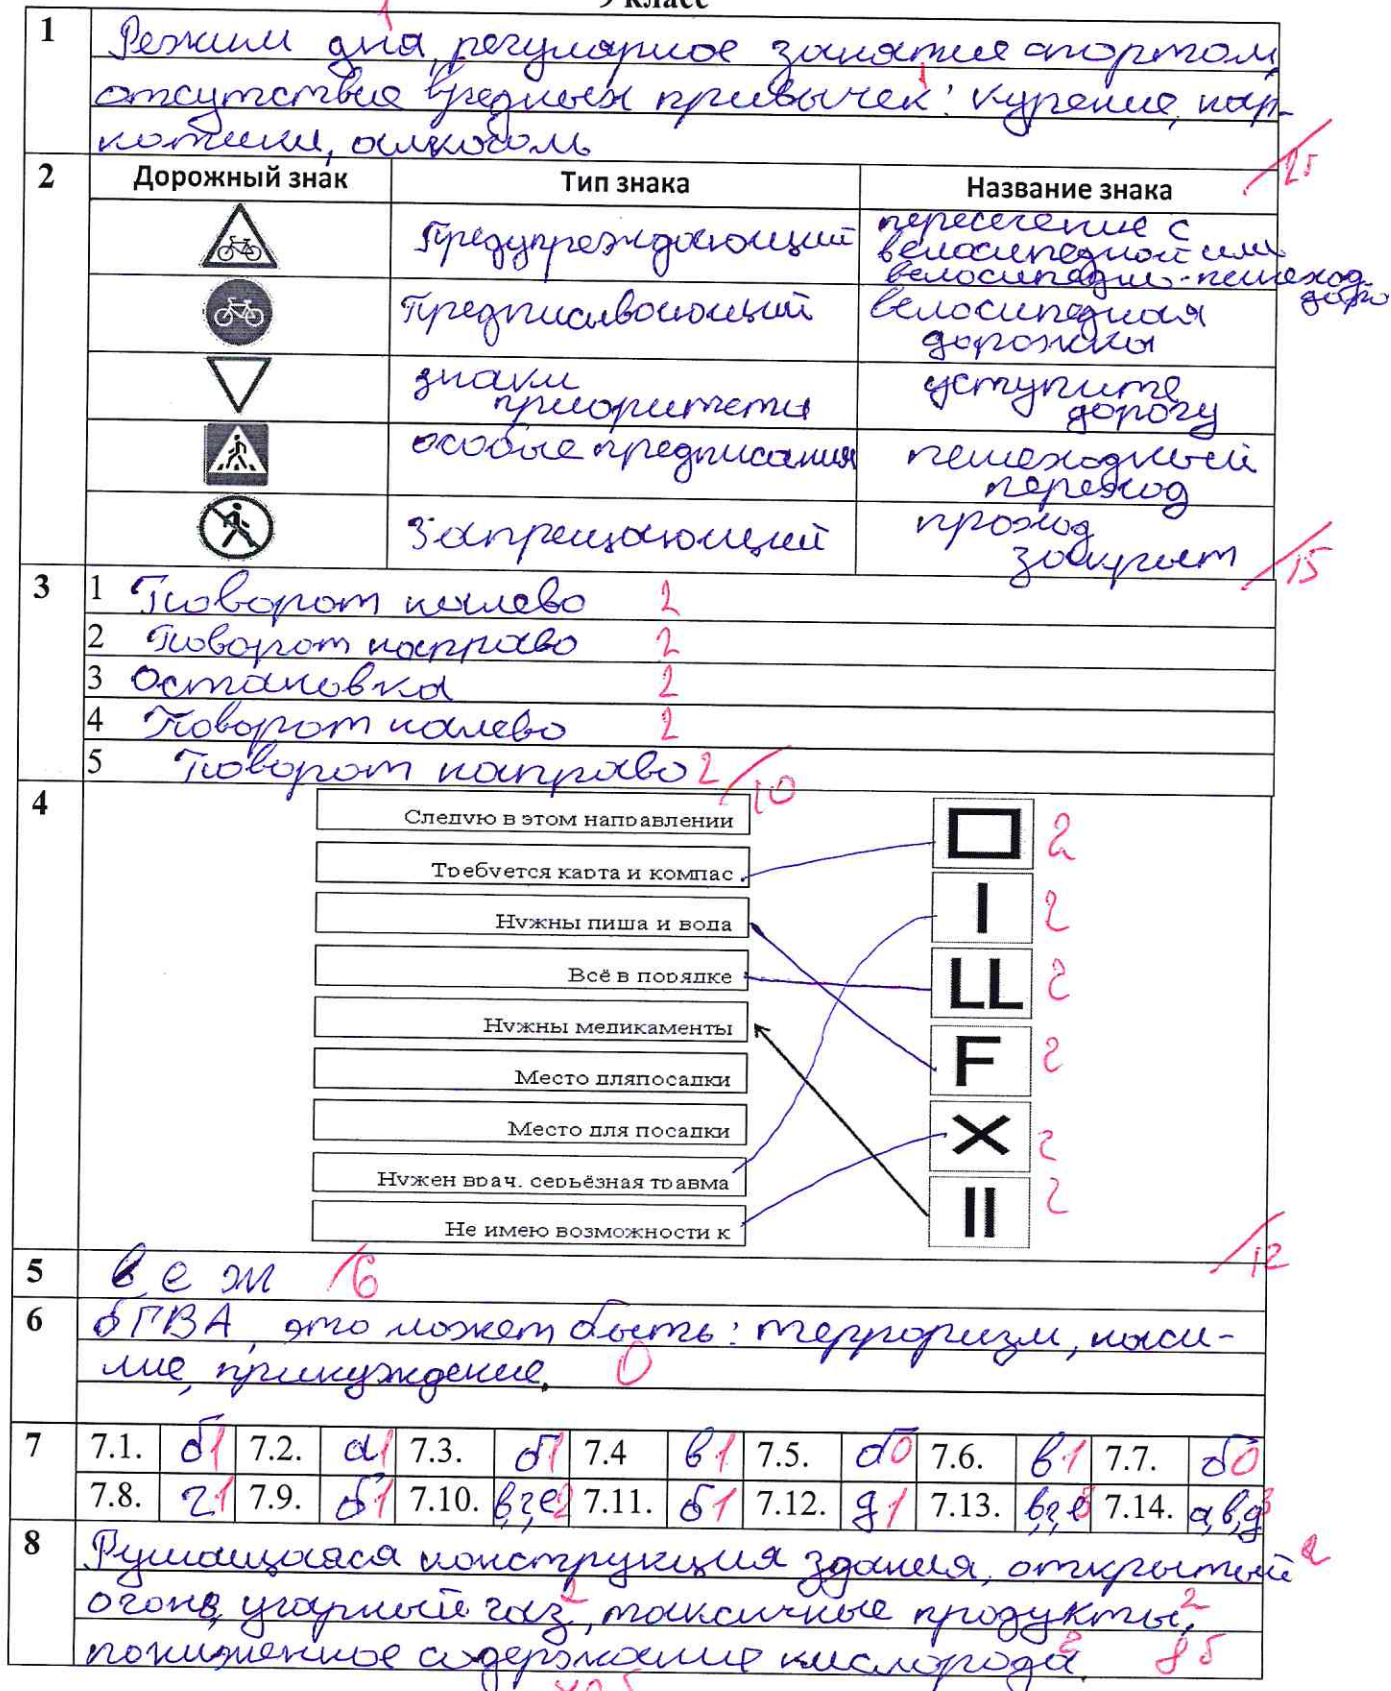 9 класс
1
1 Режим дня, регулярное занятие спортом,
отсутствие вредных привычек: курение, нар-
1
котики, алкоголь
2б
2 Дорожный знак Тип знака Название знака
Предупреждающий пересечение с
велосипедной или
велосипедно-пешеход.
Предписывающий велосипедная
дорожка
знаки уступите
приоритета дорогу
особые предписания пешеходный
переход
Запрещающий проход
закрыт
15
3 1 Поворот налево 2
2 Поворот направо 2
3 Остановка 2
4 Поворот налево 2
5 Поворот направо 2
10
4 Следую в этом направлении
Требуется карта и компас 2
Нужны пища и вода I 2
Всё в порядке LL 2
Нужны медикаменты F 2
Место дляпосадки
Место для посадки X 2
Нужен врач, серьёзная травма II 2
Не имею возможности к
12
5 в е ж 6
6 бГВА, это может быть: терроризм, наси-
лие, принуждение. 0
7 7.1. б 1 7.2. а 1 7.3. б 1 7.4 в 1 7.5. б 0 7.6. в 1 7.7. б 0
7.8. г 1 7.9. б 1 7.10. в,г,е 2 7.11. б 1 7.12. д 1 7.13. в,г,е 3 7.14. а,в,д 3
8 Рушащаяся конструкция здания, открытый 2
огонь, угарный газ, 2 токсичные продукты, 2
пониженное содержание кислорода. 2 8б